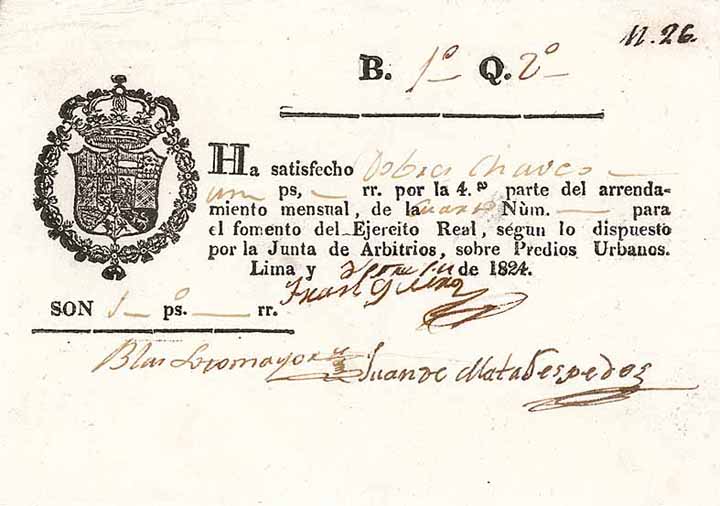 N. 26.
B. 1º Q. 2º
Ha satisfecho Chaves
un ps, rr. por la 4.ª parte del arrenda-
miento mensual, de la Núm. para
el fomento del Ejercito Real, segun lo dispuesto
por la Junta de Arbitrios, sobre Predios Urbanos.
Lima y de 1824.
Juan
SON 1 ps. rr.
Blas Juan de Mata Cespedes